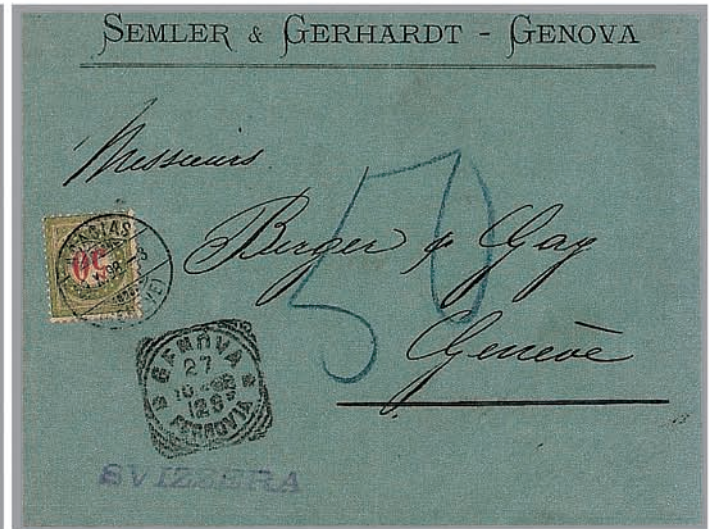 SEMLER & GERHARDT - GENOVA
Messieurs
Berger & Gay
Genève
50
50
GENOVA
27
10-98
12 S
FERROVIA
SVIZZERA